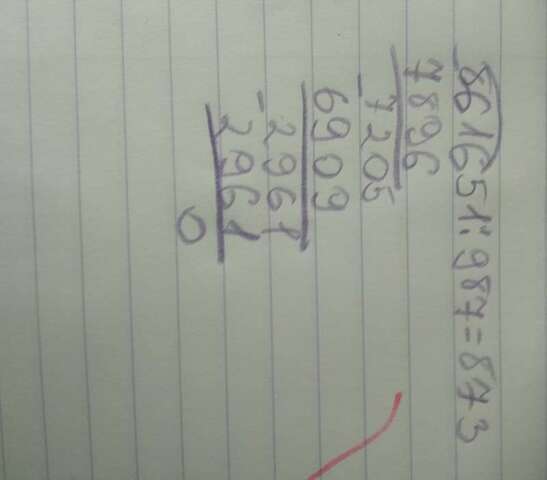 -861651:987=873
7896
-7205
6909
-2961
2961
0